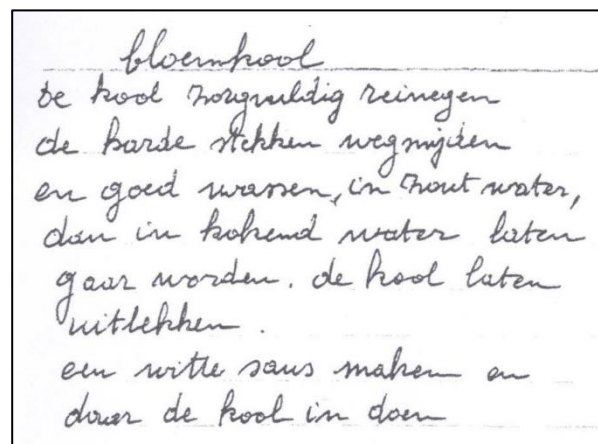 bloemkool
De kool zorgvuldig reinegen
de harde stekken wegsnijden
en goed wassen, in zout water,
dan in kokend water laten
gaar worden. de kool laten
uitlekken.
een witte saus maken en
daar de kool in doen